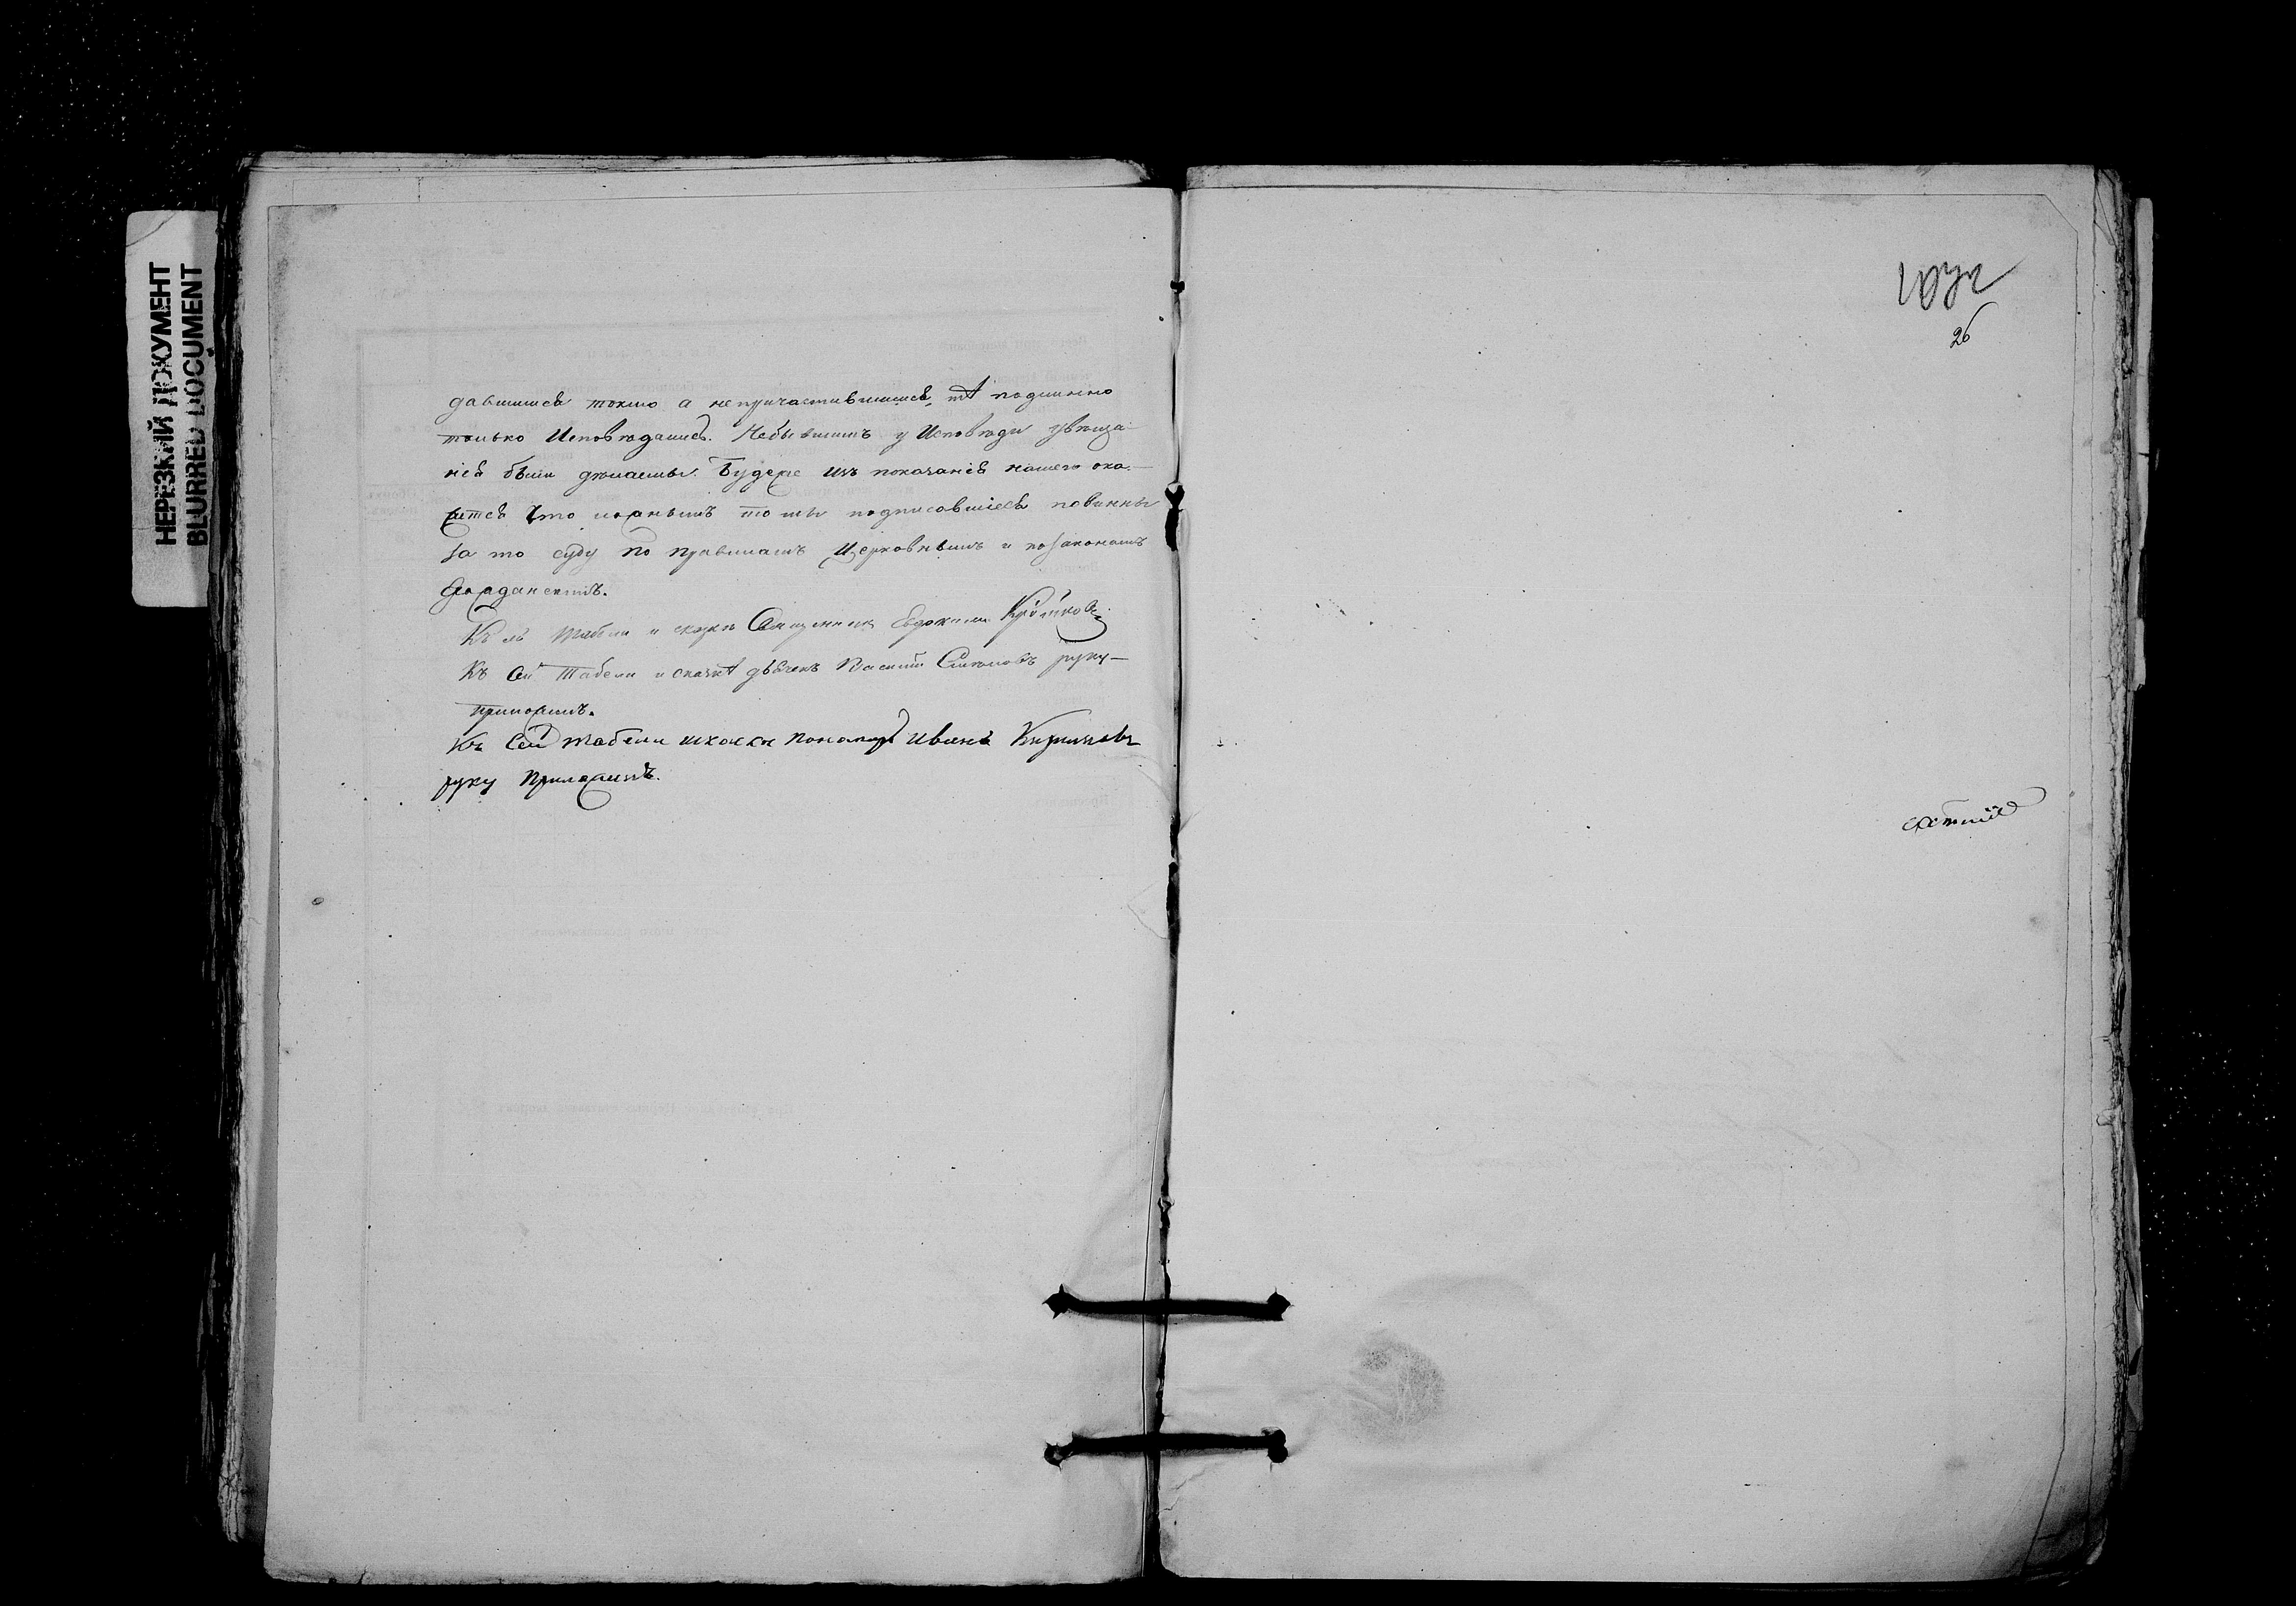 НЕРЕЗКИЙ ДОКУМЕНТ
BLURRED DOCUMENT
давшимися токмо а непричастившимися, тѣ подлинно
только Исповѣдались. Небывшимъ у Исповѣди увѣща-
нія были дѣлаемы. Буде же изъ показанія нашего ока-
жется что ложнымъ то мы подписавшіеся повинны
за то суду по правиламъ Церковнымъ и позаконамъ
Гражданскимъ.
Къ сей табели и сказкѣ Священникъ Евдокимъ
Къ сей табели и сказкѣ дьячекъ Василий руку
приложилъ.
Къ сей табели исказки пономарь Иванъ Кириловъ
руку приложилъ.
26